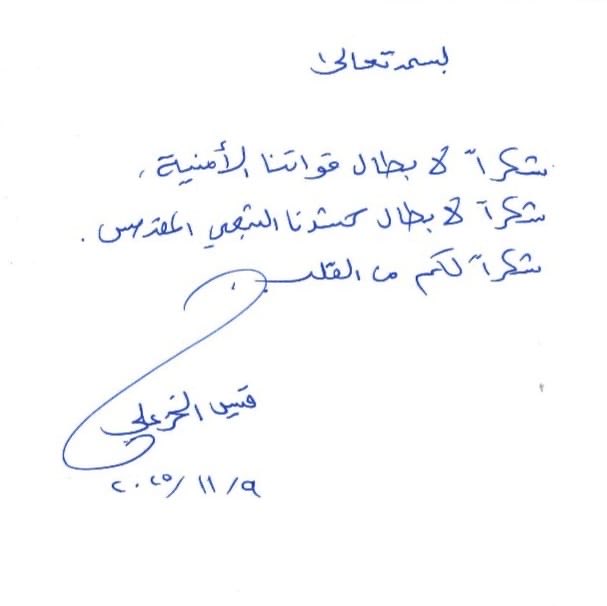 بسمه تعالى
شكراً لأبطال قواتنا الأمنية،
شكراً لأبطال حشدنا الشعبي المقدس.
شكراً لكم من القلب.
قيس الخزعلي
٢٠٢٥/١١/٩